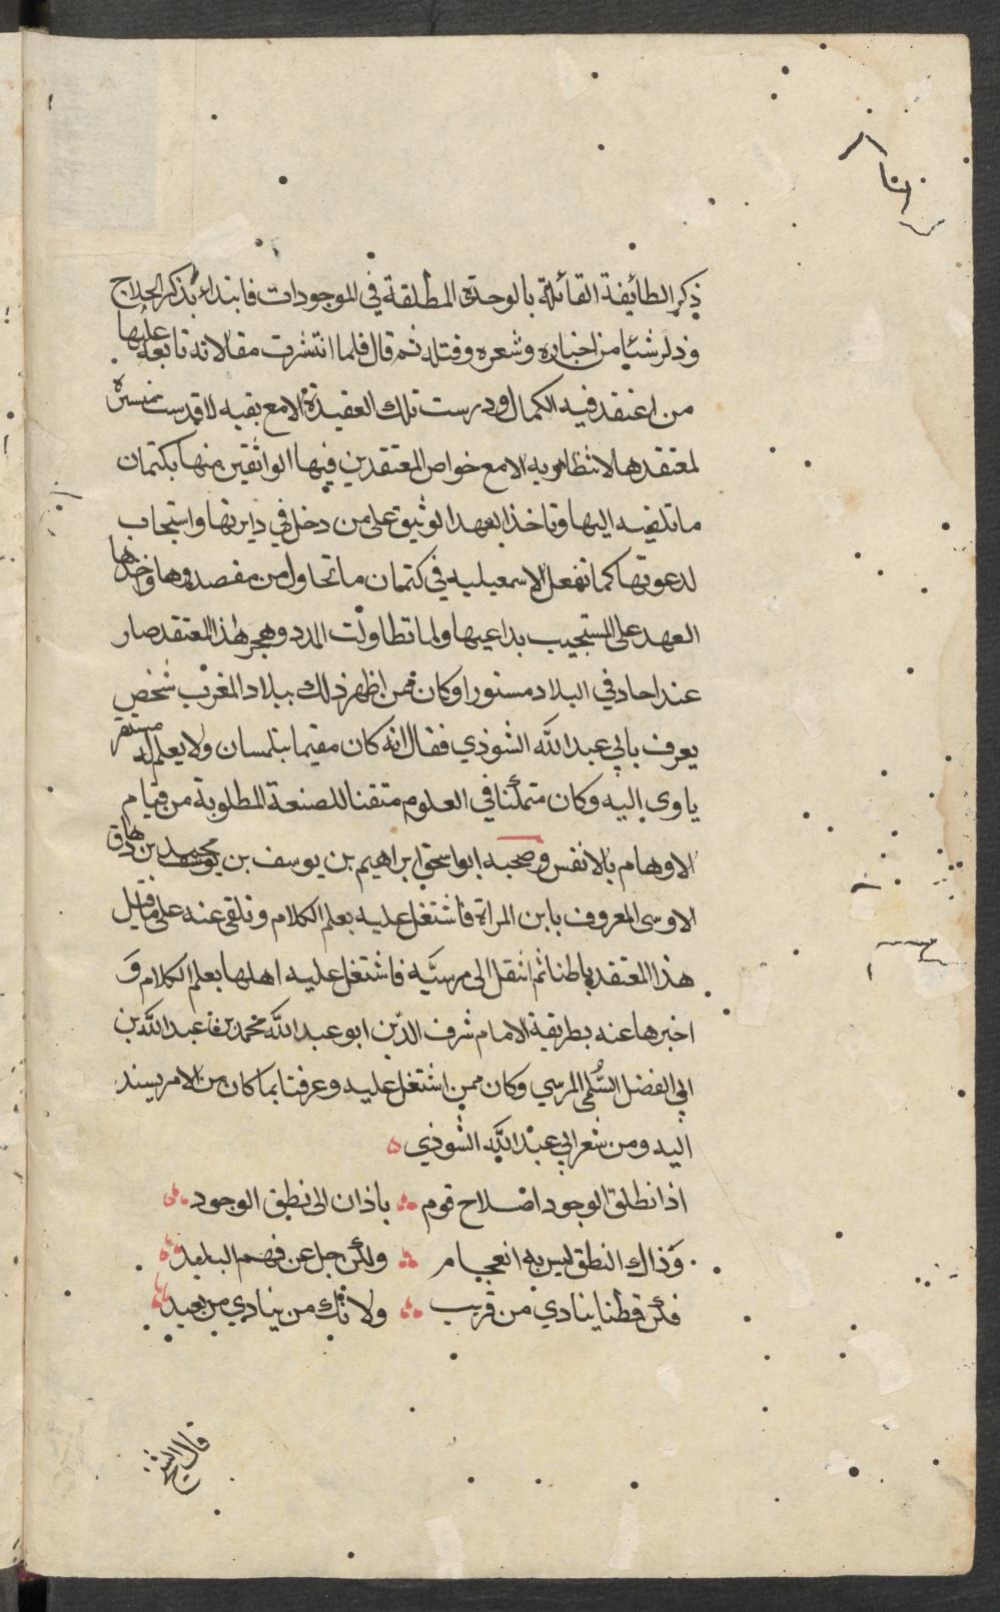 الناس
ذكر الطائفة القائلة بالوحدة المطلقة في الموجودات فابتداء بذكر الحلاج
وذكر شيئا من اخباره وشعره وقتله ثم قال فلما انتشرت مقالاته تابعه عليها
من اعتقد فيه الكمال ودرست تلك العقيدة الا مع بقيه لا قدست مسره
لمعتقدها لا تتظاهر به الا مع خواص المعتقدين فيها الواثقين منها بكتمان
ما تلقيه اليها وتاخذ العهد الوثيق على من دخل في دايرتها واستجاب
لدعوتها كما تفعل الاسمعيليه في كتمان ما تحاول من مقصدها واخذها
العهد على المستجيب بداعيها ولما تطاولت المدد وهجر هذا المعتقد صار
عند احاد في البلاد مستورا وكان فمن اظهر ذلك ببلاد المغرب شخص
يعرف بابي عبد الله الشوذي فقال انه كان مقيما بتلمسان ولا يعلم له مستقر
ياوى اليه وكان متمكنا في العلوم متقنا للصنعة المطلوبة من قيام
الاوهام بالانفس وصحبه ابو اسحق ابراهيم بن يوسف بن محمد بن دهاق
الاوسى المعروف بابن المراة فاشتغل عليه بعلم الكلام وتلقى عنه على ما قيل
هذا المعتقد باطنا ثم انتقل الى مرسيه فاشتغل عليه اهلها بعلم الكلام و
اخبرها عنه بطريقة الامام شرف الدين ابو عبد الله محمد بن عبد الله بن
ابي الفضل السلمى المرسي وكان ممن اشتغل عليه وعرفنا بما كان من الامر يسند
اليه ومن شعر ابي عبد الله الشوذي ه
اذا نطق الوجود اصلاح قوم ∴ باذان الى نطق الوجود
وذاك النطق ليس به انعجام ∴ ولكن جل عن فهم البليد
فكن فطنا ينادي من قريب ∴ ولا تك من ينادي من بعيد
قال الشيخ